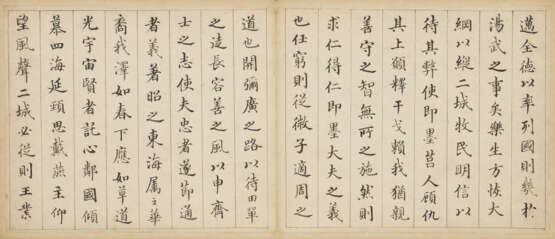 邁全德以率列國則幾於
湯武之事矣樂生方恢大
綱以縱二城牧民明信以
待其弊使即墨莒人顧仇
其上願釋干戈賴我猶親
善守之智無所之施然則
求仁得仁即墨大夫之義
也任窮則從微子適周之
道也開彌廣之路以待田單
之徒長容善之風以申齊
士之志使夫忠者遂節通
者義著昭之東海屬之華
裔我澤如春下應如草道
光宇宙賢者託心鄰國傾
慕四海延頸思戴燕主仰
望風聲二城必從則王業